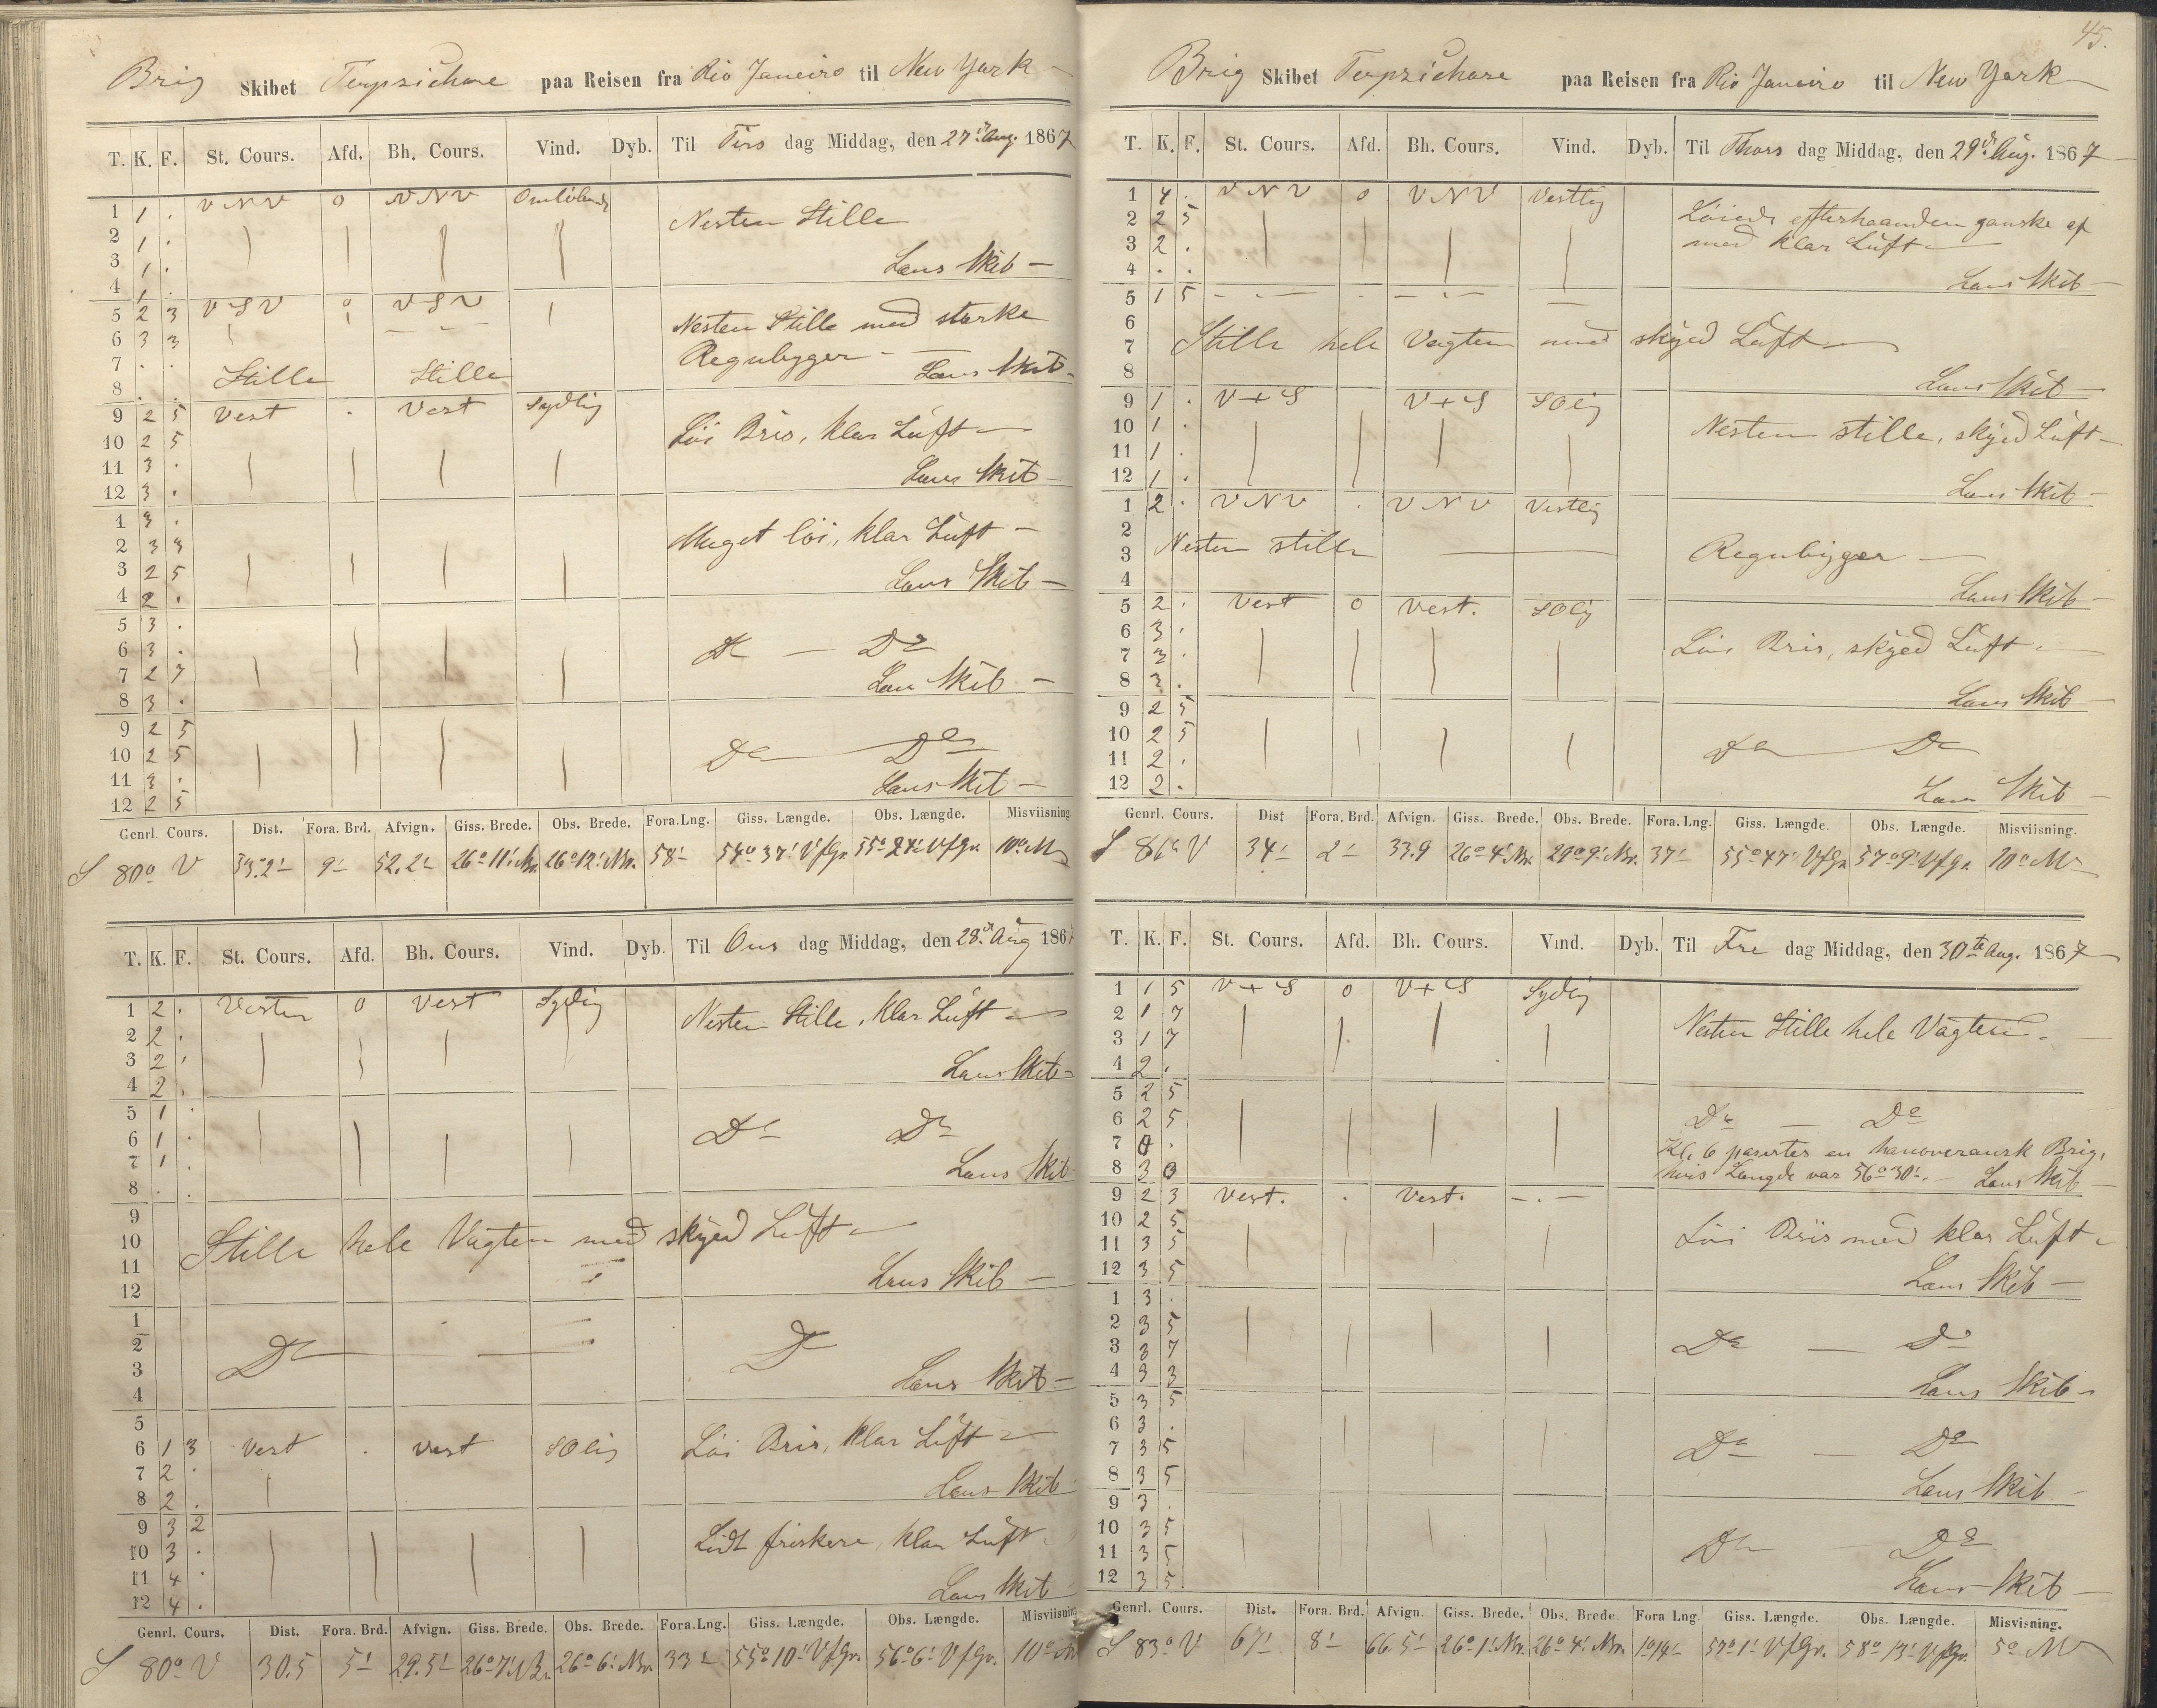 Brig Skibet Terpsichore paa Reisen fra Rio Janeiro til New York
T. K. F. St. Cours. Afd. Bh. Cours. Vind. Dyb. Til Tirs dag Middag, den 27de Aug. 1867
1 1 . VNV 0 VNV Omløbende
2 1 . Nesten Stille
3 1 .
4 1 . Lens Skib
5 2 3 VSV 0 VSV
6 3 3 Nesten Stille med stærke
7 . . Regnbyger
8 . . Stille Stille Lens Skib
9 2 5 Vest . Vest Sydlig
10 2 5 Løi Bris, klar Luft
11 3 .
12 3 . Lens Skib
1 3 .
2 3 3 Meget løi, klar Luft
3 2 5
4 2 . Lens Skib
5 3 .
6 3 . Do Do
7 2 7
8 3 . Lens Skib
9 2 5
10 2 5 Do Do
11 3 .
12 2 5 Lens Skib
Genrl. Cours. Dist. Fora. Brd. Afvign. Giss. Brede. Obs. Brede. Fora. Lng. Giss. Længde. Obs. Længde. Misviisning
S 80° V 53.2' 9' 52.2' 26°11' Nbr. 26°12' Nbr. 58' 54°37' VfGr. VfGr. 10° M
T. K. F. St. Cours. Afd. Bh. Cours. Vind. Dyb. Til Ons dag Middag, den 28de Aug 186
1 2 . Vesten 0 Vest Sydlig
2 2 . Nesten Stille, klar Luft
3 2 .
4 2 . Lens Skib
5 1 .
6 1 . Do Do
7 1 .
8 . . Lens Skib
9
10 Stille hele Vagten med skyed Luft
11
12 Lens Skib
1
2 Do Do
3
4 Lens Skib
5
6 1 3 Vest . Vest SOlig Løi Bris, klar Luft
7 2 .
8 2 . Lens Skib
9 3 2
10 3 . Lidt friskere, klar Luft
11 4 .
12 4 . Lens Skib
Genrl. Cours. Dist. Fora. Brd. Afvign. Giss. Brede. Obs. Brede. Fora. Lng. Giss. Længde. Obs. Længde. Misviisning
S 80° V 30.5 5' 29.5' 26°7' Nbr. 26°6' Nbr. 33' 55°10' VfGr. 56°6' VfGr. 10° M
45.
Brig Skibet Terpsichore paa Reisen fra Rio Janeiro til New York
T. K. F. St. Cours. Afd. Bh. Cours. Vind. Dyb. Til Thors dag Middag, den 29de Aug. 1867
1 4 . VNV 0 VNV Vestlig
2 2 5 Løiede efterhaanden ganske af
3 2 . med klar Luft
4 . . Lens Skib
5 1 5
6
7 Stille hele Vagten med skyed Luft
8 Lens Skib
9 1 . V + S V + S SOlig
10 1 . Nesten stille, skyed Luft
11 1 .
12 1 . Lens Skib
1 2 . VNV . VNV Vestlig
2
3 Nesten stille Regnbyger
4 Lens Skib
5 2 . Vest 0 Vest. SOlig
6 3 . Løi Bris, skyed Luft
7 3 .
8 3 . Lens Skib
9 2 5
10 2 5 Do Do
11 2 .
12 2 . Lens Skib
Genrl. Cours. Dist Fora. Brd. Afvign. Giss. Brede. Obs. Brede. Fora. Lng. Giss. Længde. Obs. Længde. Misviisning.
S V 34' 2' 33.9 26°4' Nbr. Nbr. 37' 55°47' VfGr. 57°9' VfGr. 10° M
T. K. F. St. Cours. Afd. Bh. Cours. Vind. Dyb. Til Fre dag Middag, den 30te Aug. 1867
1 1 5 V + S 0 V + S Sydlig
2 1 7 Nesten Stille hele Vagten
3 1 7
4 2 .
5 2 5
6 2 5 Do Do
7 0 . Kl. 6 paseertes en hanoveransk Brig,
8 3 0 hvis Længde var 56°30'. Lens Skib
9 2 3 Vest. . Vest.
10 2 5 Løi Bris med klar Luft
11 3 5
12 3 5 Lens Skib
1 3 .
2 3 5
3 3 7 Do Do
4 3 3 Lens Skib
5 3 5
6 3 .
7 3 5 Do Do
8 3 5 Lens Skib
9 3 .
10 3 5
11 3 5 Do Do
12 3 5 Lens Skib
Genrl. Cours. Dist. Fora. Brd. Afvign. Giss. Brede. Obs. Brede. Fora Lng. Giss. Længde. Obs. Længde. Misvisning.
S 83° V 67' 8' 66.5' 26°1' Nbr. 26°4' Nbr. 1°14' 57°1' VfGr. 58°13' VfGr. 5° M